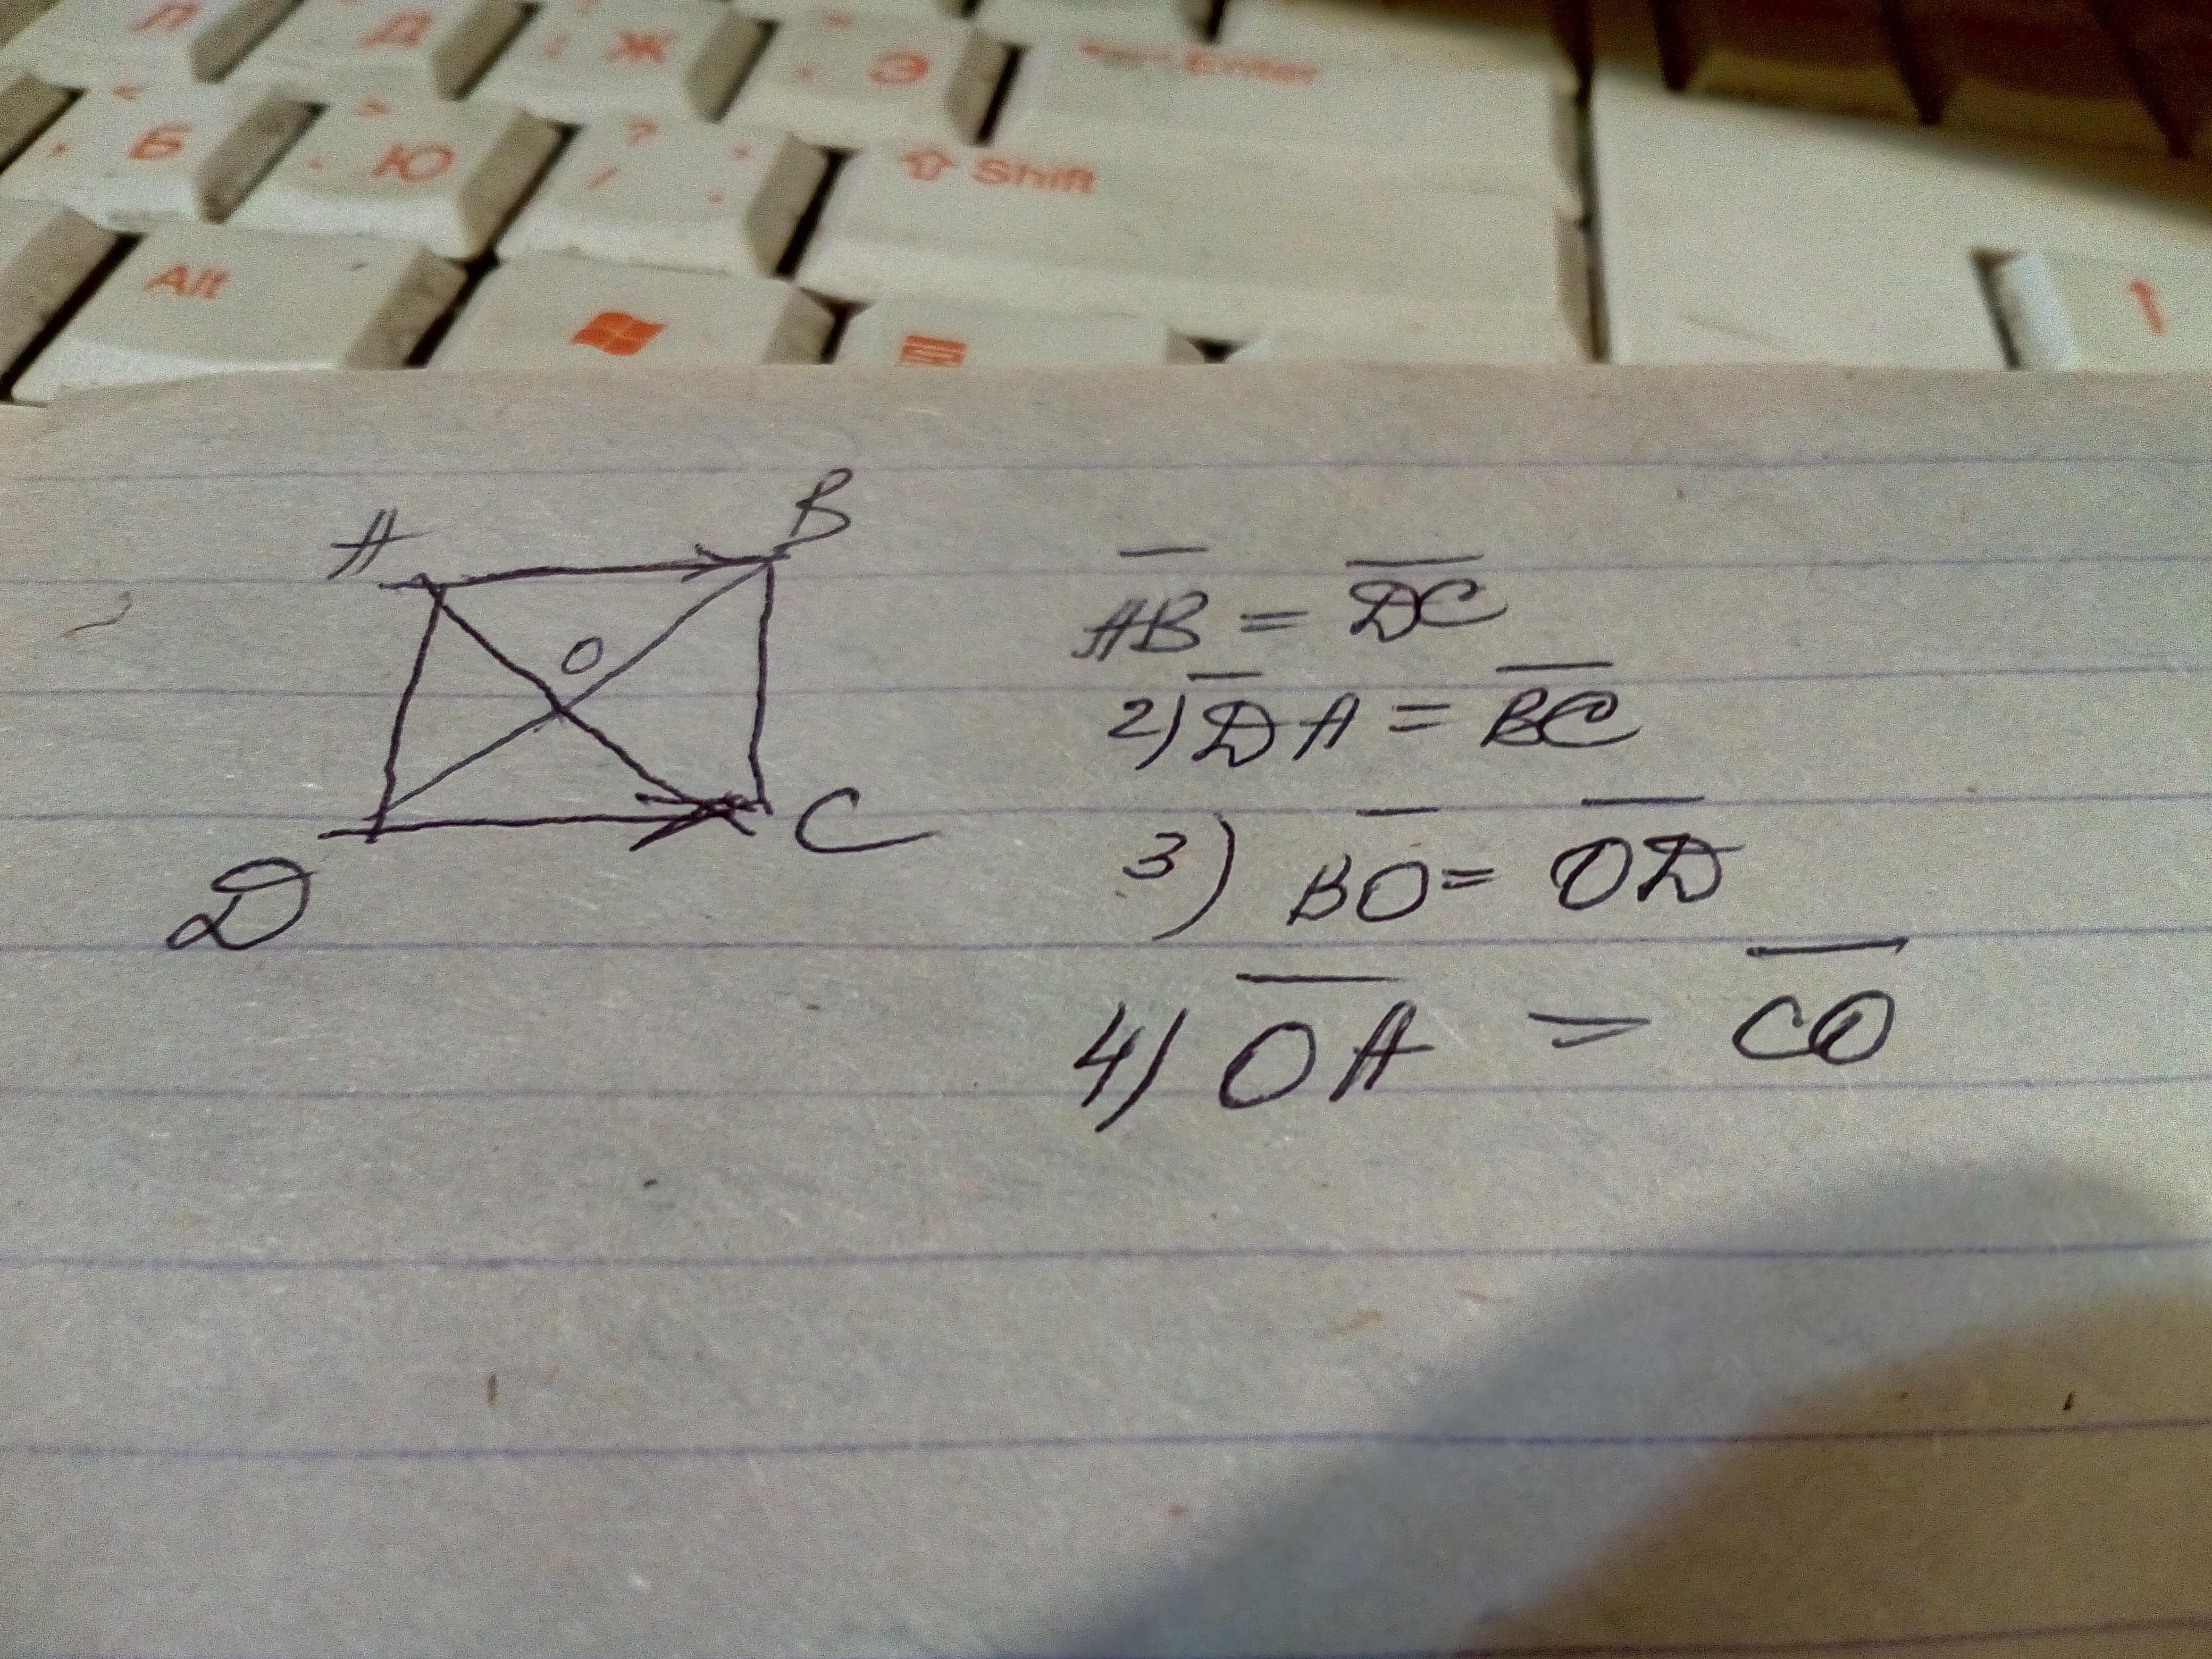 Л Д Ж Э Enter
< > ?
, Б . Ю / , .
Shift
Alt
A B
O
D C
AB = DC
2) DA = BC
3) BO = OD
4) OA = CO